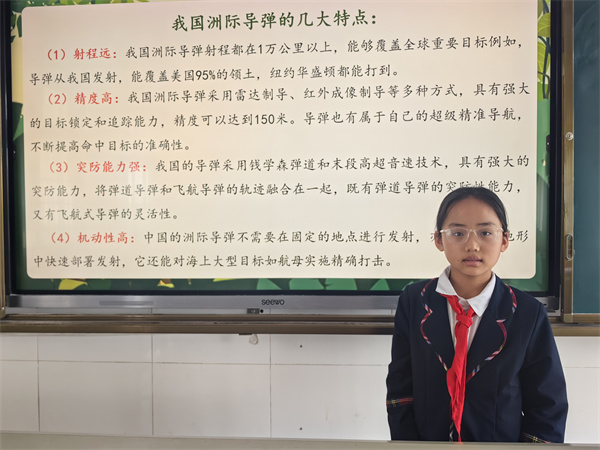 我国洲际导弹的几大特点：
（1）射程远：我国洲际导弹射程都在1万公里以上，能够覆盖全球重要目标例如，
导弹从我国发射，能覆盖美国95%的领土，纽约华盛顿都能打到。
（2）精度高：我国洲际导弹采用雷达制导、红外成像制导等多种方式，具有强大
的目标锁定和追踪能力，精度可以达到150米。导弹也有属于自己的超级精准导航，
不断提高命中目标的准确性。
（3）突防能力强：我国的导弹采用钱学森弹道和末段高超音速技术，具有强大的
突防能力，将弹道导弹和飞航导弹的轨迹融合在一起，既有弹道导弹的突防性能力，
又有飞航式导弹的灵活性。
（4）机动性高：中国的洲际导弹不需要在固定的地点进行发射，地形
中快速部署发射，它还能对海上大型目标如航母实施精确打击。
seewo